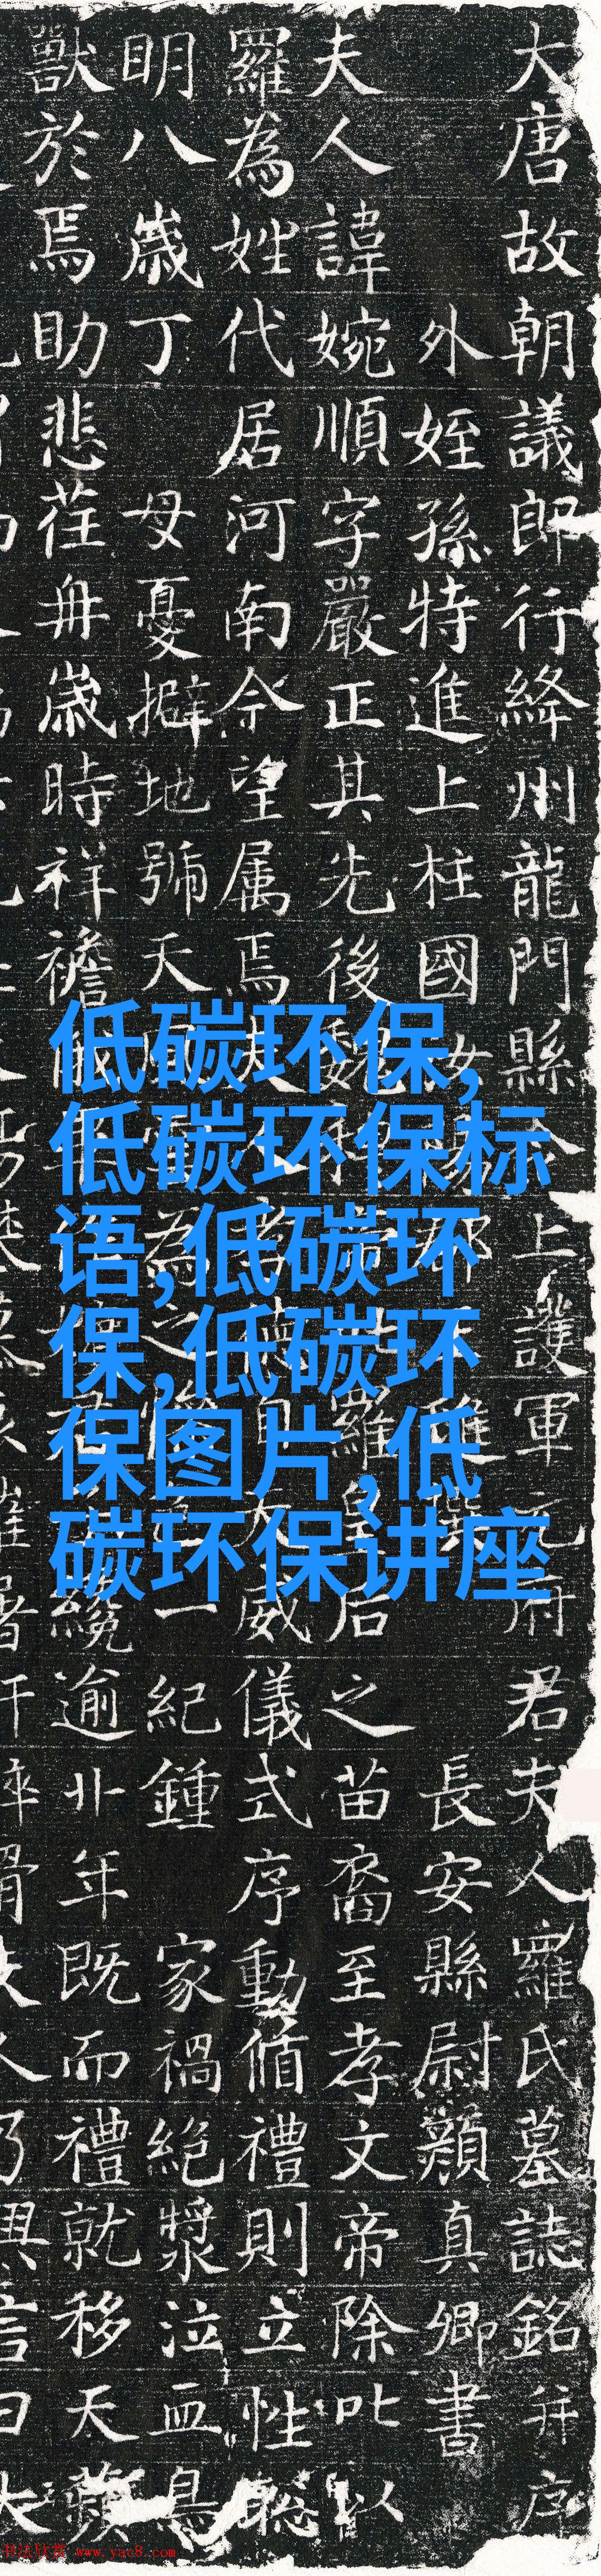 大唐故朝議郎行絳州龍門縣令上護軍元府君夫人羅氏墓誌銘并序
外姪孫特進上柱國 長安縣尉顏真卿書
夫人諱婉順字嚴正其先後魏 羅皇后之苗裔至孝文帝除叱以
羅為姓代居河南今望属焉夫 威儀式序動循禮則立性聰
明八歲丁 母憂擗地號天 為之 一紀鍾 家禍絕漿泣血鳥
獸於焉助悲荏苒歲時祥 逾卄年既而禮就移天蘋
低碳环保,
低碳环保标
语,低碳环
保,低碳环
保图片,低
碳环保讲座
书法欣赏 www.yac8.com